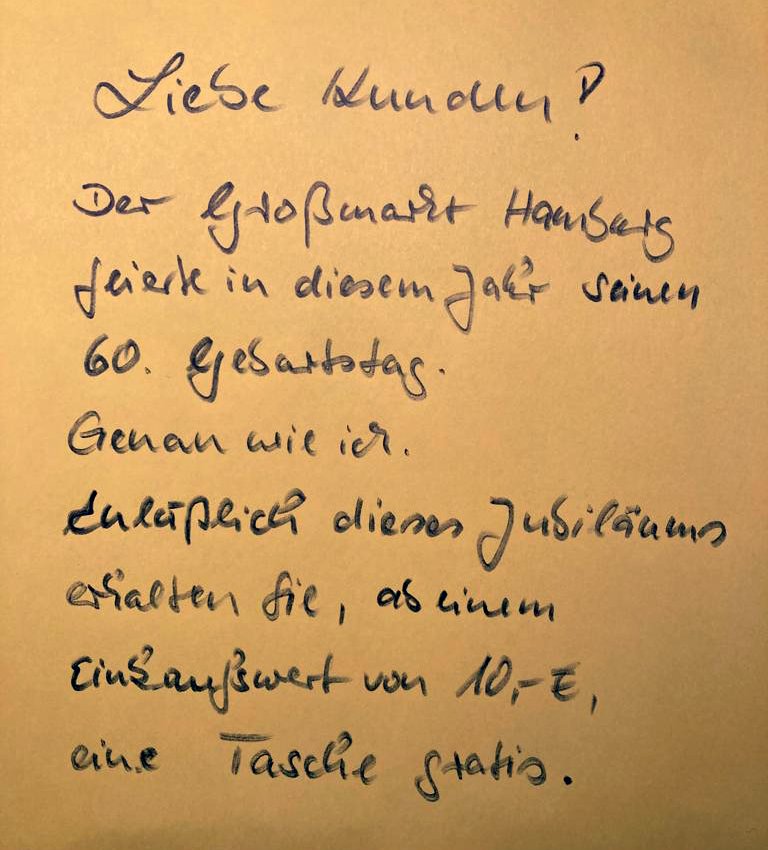 Liebe Kunden!
Der Großmarkt Hamburg
feierte in diesem Jahr seinen
60. Geburtstag.
Genau wie ich.
Anläßlich dieses Jubiläums
erhalten Sie, ab einem
Einkaufswert von 10,- €,
eine Tasche gratis.